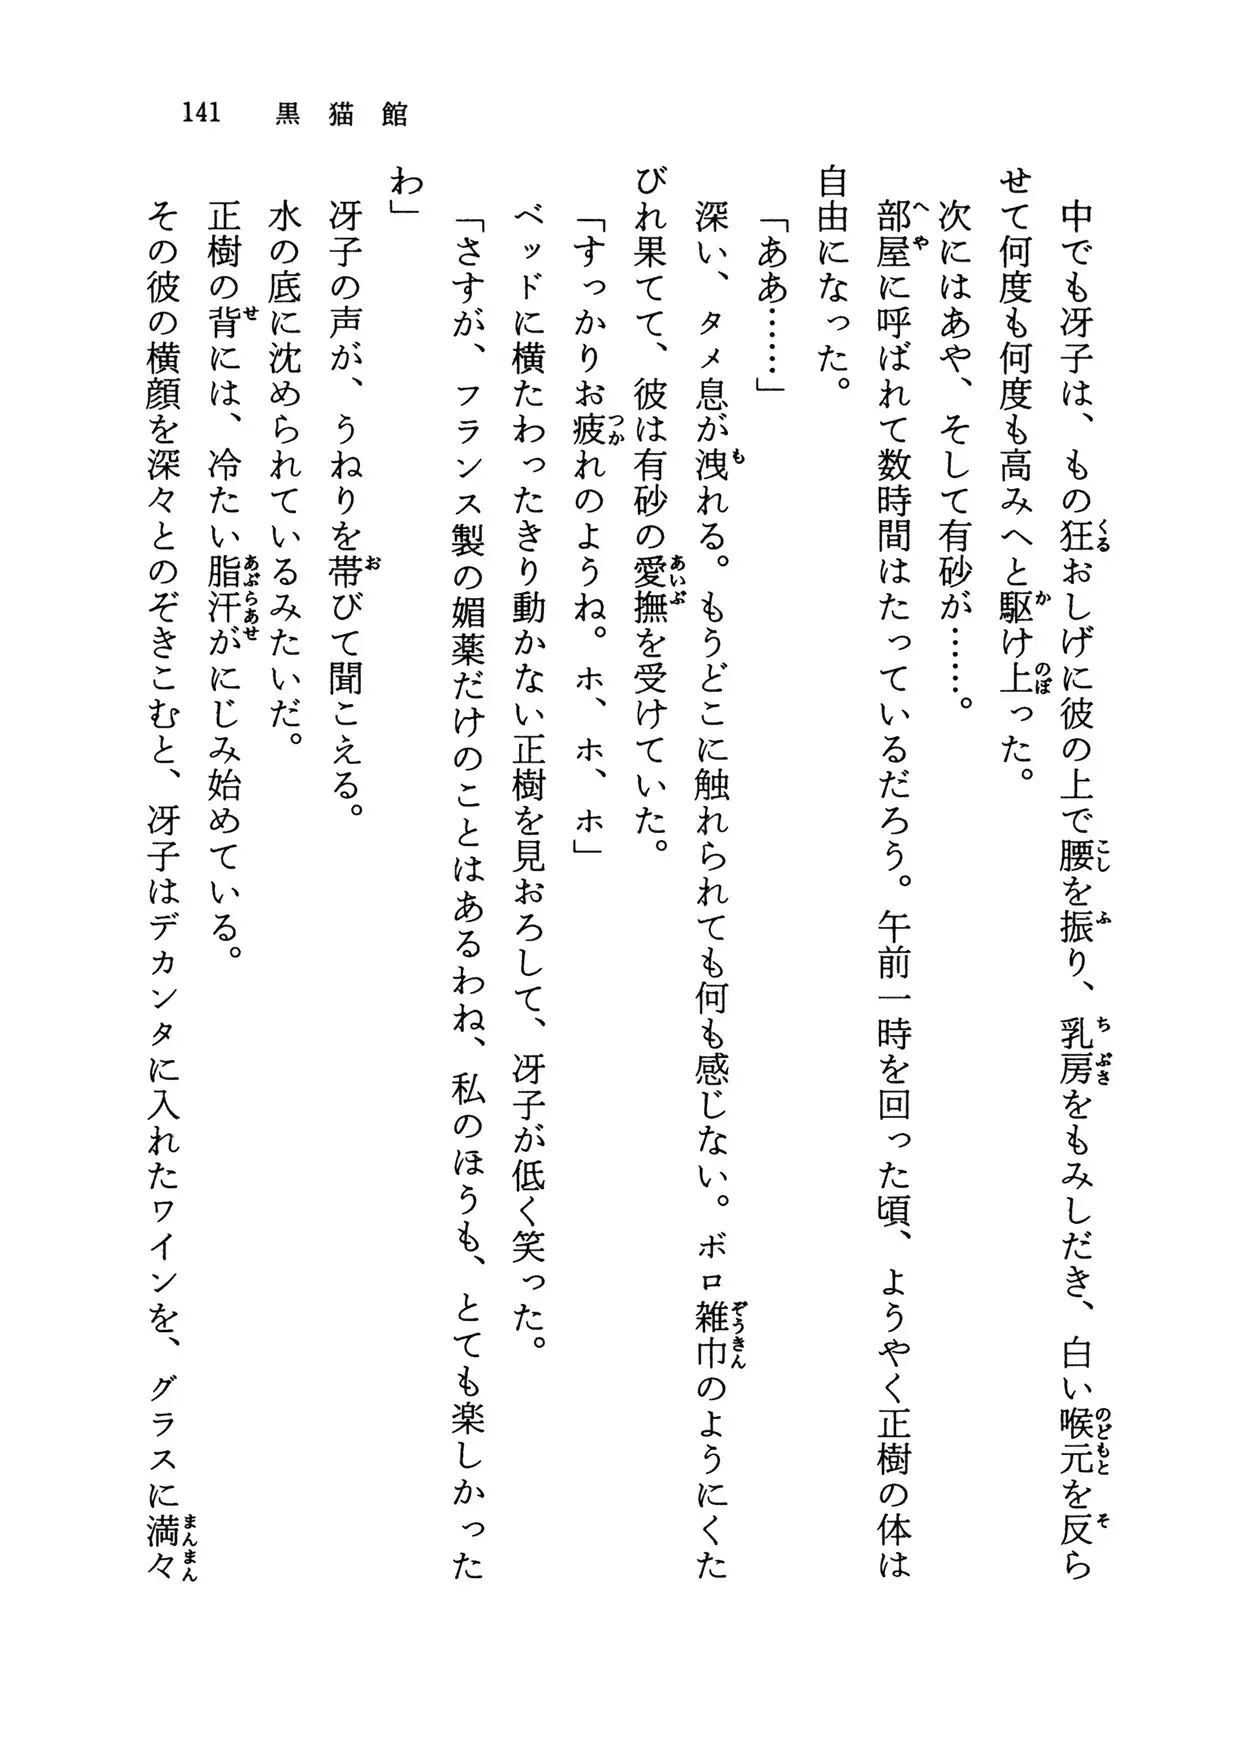 141 黒猫館
中でも冴子は、もの狂おしげに彼の上で腰を振り、乳房をもみしだき、白い喉元を反ら
せて何度も何度も高みへと駆け上った。
次にはあや、そして有砂が……。
部屋に呼ばれて数時間はたっているだろう。午前一時を回った頃、ようやく正樹の体は
自由になった。
「ああ……」
深い、タメ息が洩れる。もうどこに触れられても何も感じない。ボロ雑巾のようにくた
びれ果てて、彼は有砂の愛撫を受けていた。
「すっかりお疲れのようね。ホ、ホ、ホ」
ベッドに横たわったきり動かない正樹を見おろして、冴子が低く笑った。
「さすが、フランス製の媚薬だけのことはあるわね、私のほうも、とても楽しかった
わ」
冴子の声が、うねりを帯びて聞こえる。
水の底に沈められているみたいだ。
正樹の背には、冷たい脂汗がにじみ始めている。
その彼の横顔を深々とのぞきこむと、冴子はデカンタに入れたワインを、グラスに満々